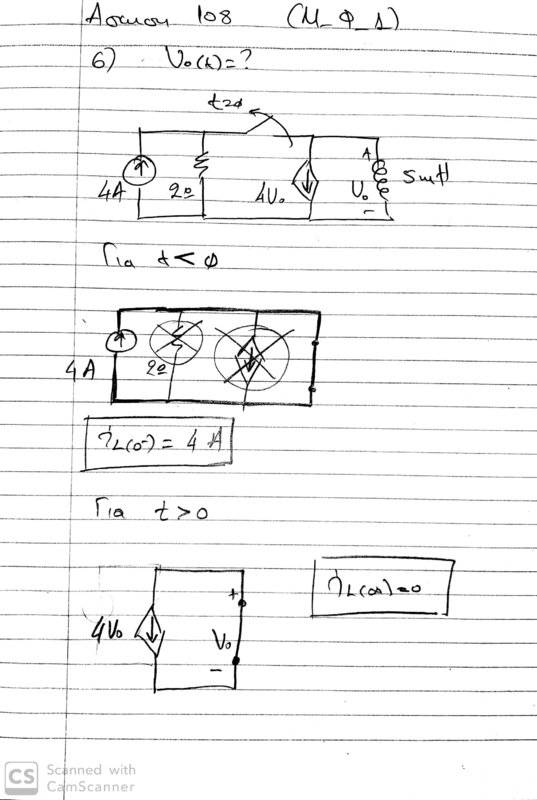 Άσκηση 108 (Μ_Φ_Δ)
6) Vo(t)=?
t=0
4A 2Ω 4Vo Vo - 5mH
Για t<0
4A 2Ω
iL(0-) = 4 A
Για t>0
4Vo + Vo - iL(∞)=0
CS Scanned with
CamScanner